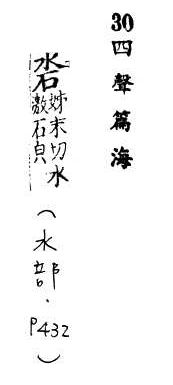 30四聲篇海
姊末切水
激石皃
(水部．P432)